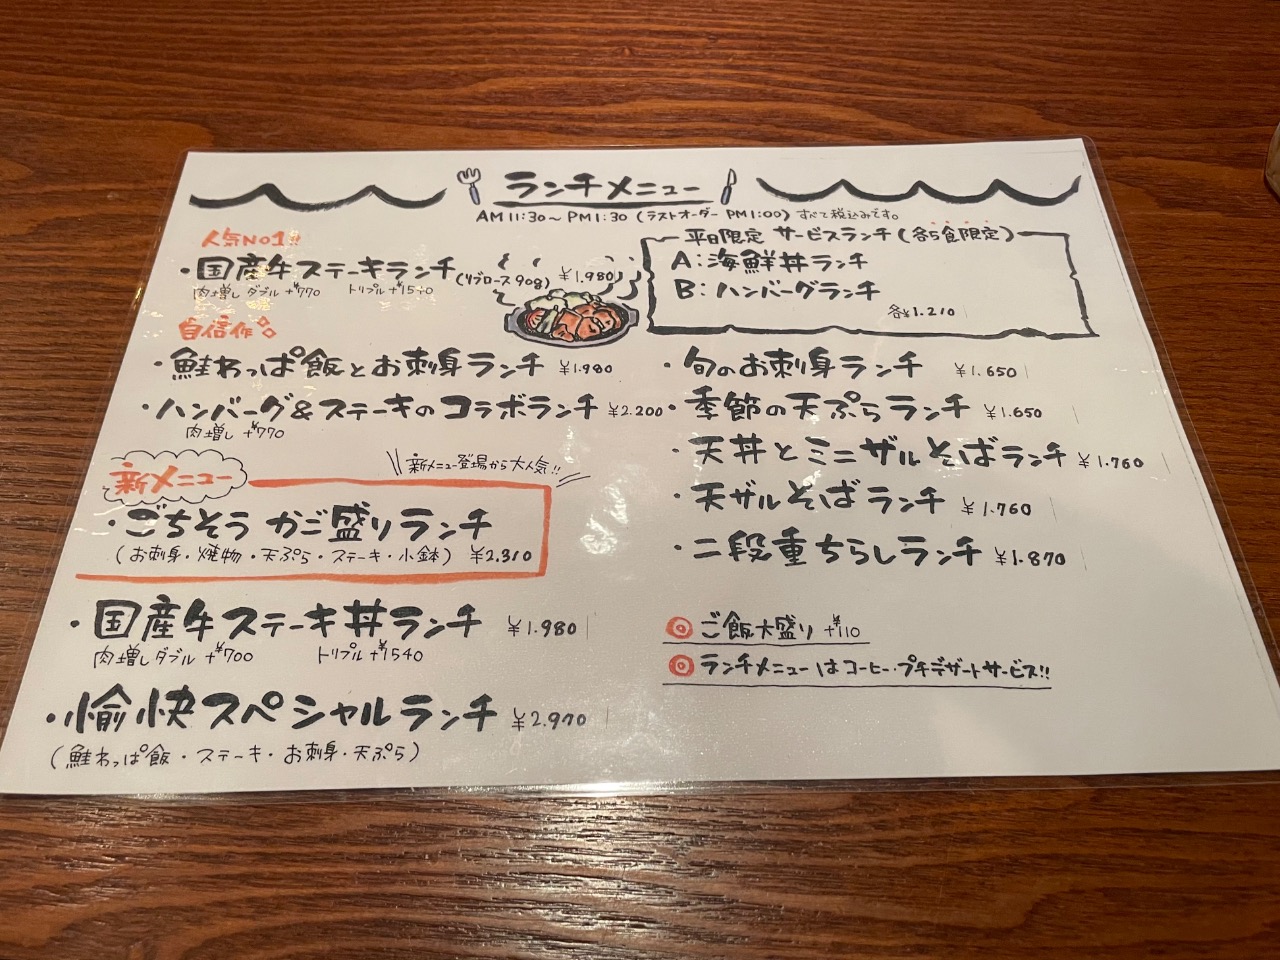 ランチメニュー
AM11:30〜PM1:30（ラストオーダーPM1:00）すべて税込みです。
人気No1!!
・国産牛ステーキランチ（リブロース90g）¥1.980
肉増し ダブル+¥770 トリプル+¥1540
自信作
・鮭わっぱ飯とお刺身ランチ ¥1.980
・ハンバーグ&ステーキのコラボランチ ¥2.200
肉増し +¥770
新メニュー
新メニュー登場から大人気!!
・ごちそう かご盛りランチ
（お刺身・焼物・天ぷら・ステーキ・小鉢）¥2.310
・国産牛ステーキ丼ランチ ¥1.980
肉増しダブル +¥700 トリプル+¥1540
・愉快スペシャルランチ ¥2.970
（鮭わっぱ飯・ステーキ・お刺身・天ぷら）
平日限定 サービスランチ（各5食限定）
A:海鮮丼ランチ
B:ハンバーグランチ
各¥1.210
・旬のお刺身ランチ ¥1.650
・季節の天ぷらランチ ¥1.650
・天丼とミニザルそばランチ ¥1.760
・天ザルそばランチ ¥1.760
・二段重ちらしランチ ¥1.870
◎ご飯大盛り +¥110
◎ランチメニューはコーヒー・プチデザートサービス!!